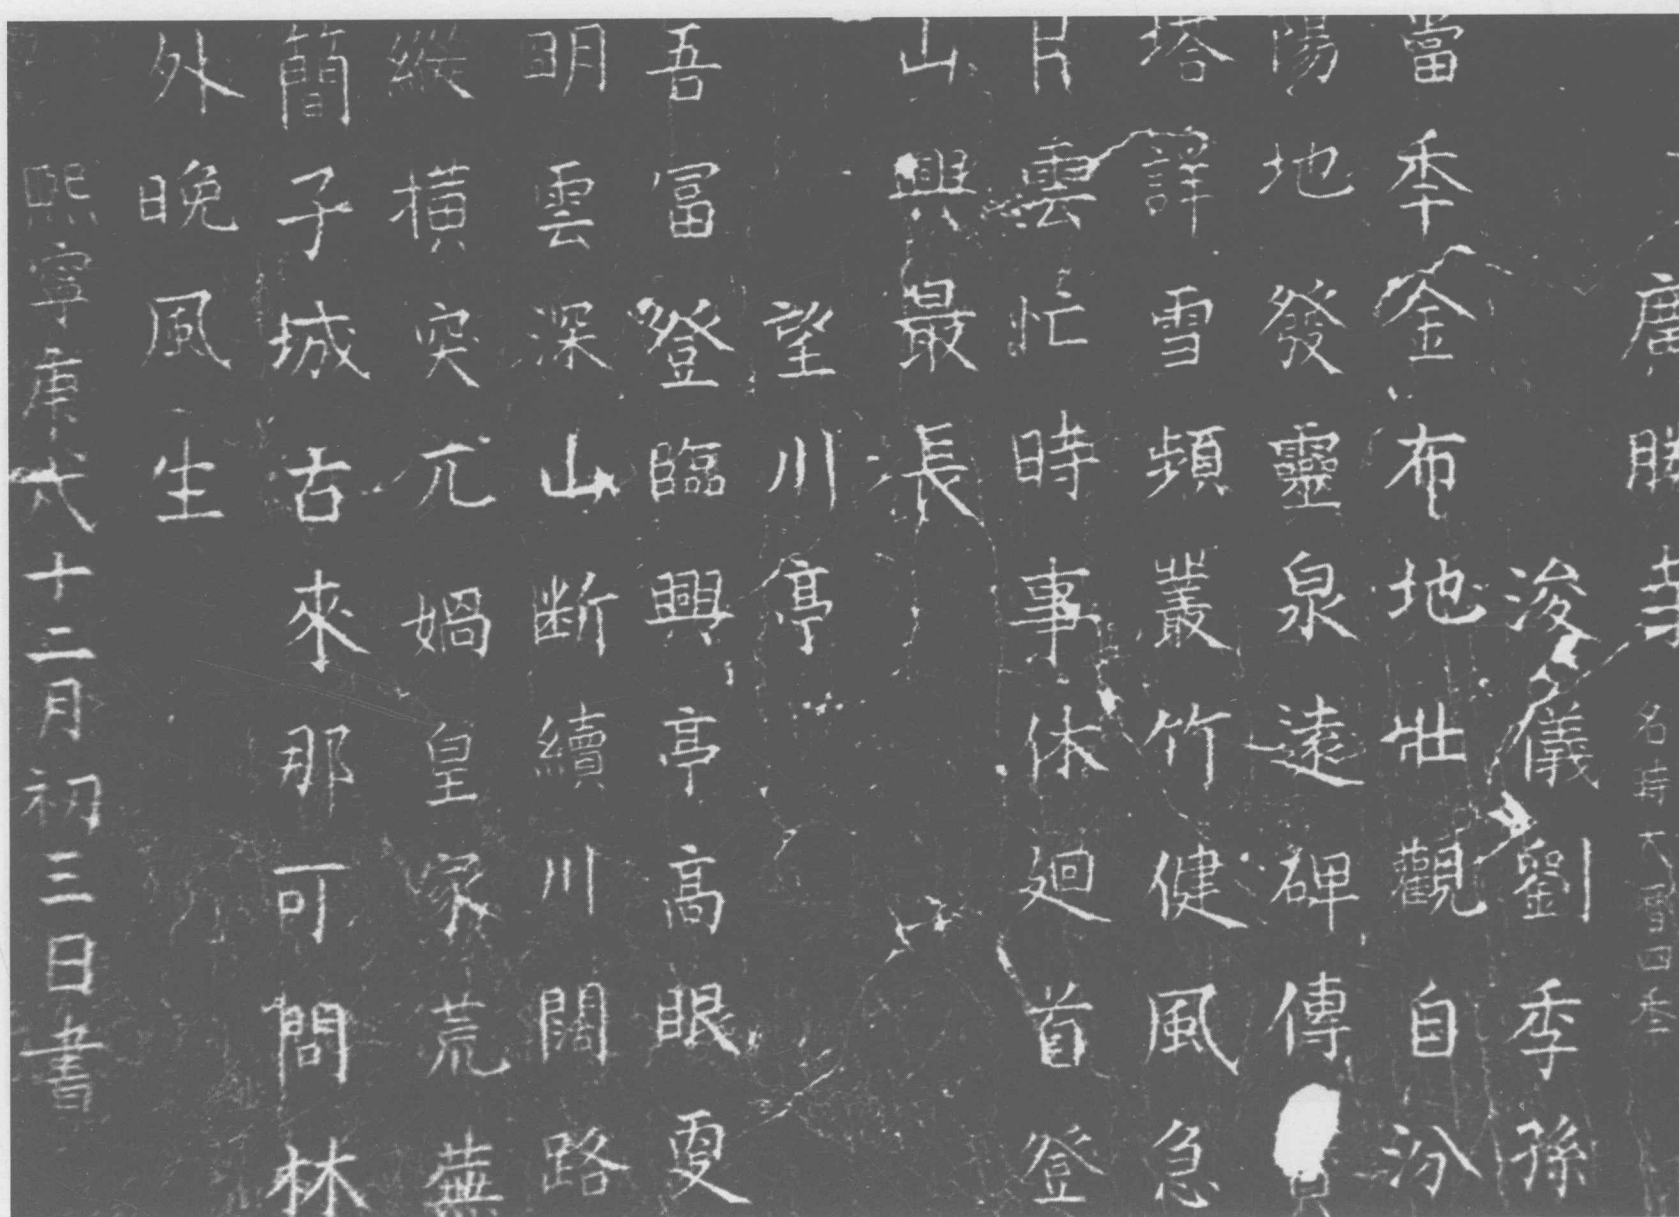 廣勝寺名詩大曆曰叄
浚儀劉季孫
當季金布地壯觀自汾
陽地發靈泉遠碑傳
塔詳雪頻叢竹健風急
片雲忙時事休廻首登
山興最長
望川亭
吾富登臨興亭高眼更
明雲深山断續川闊路
縱橫突兀媧皇冢荒蕪
簡子城古來那可問林
外晚風生
熙寧庚戌十二月初三日書